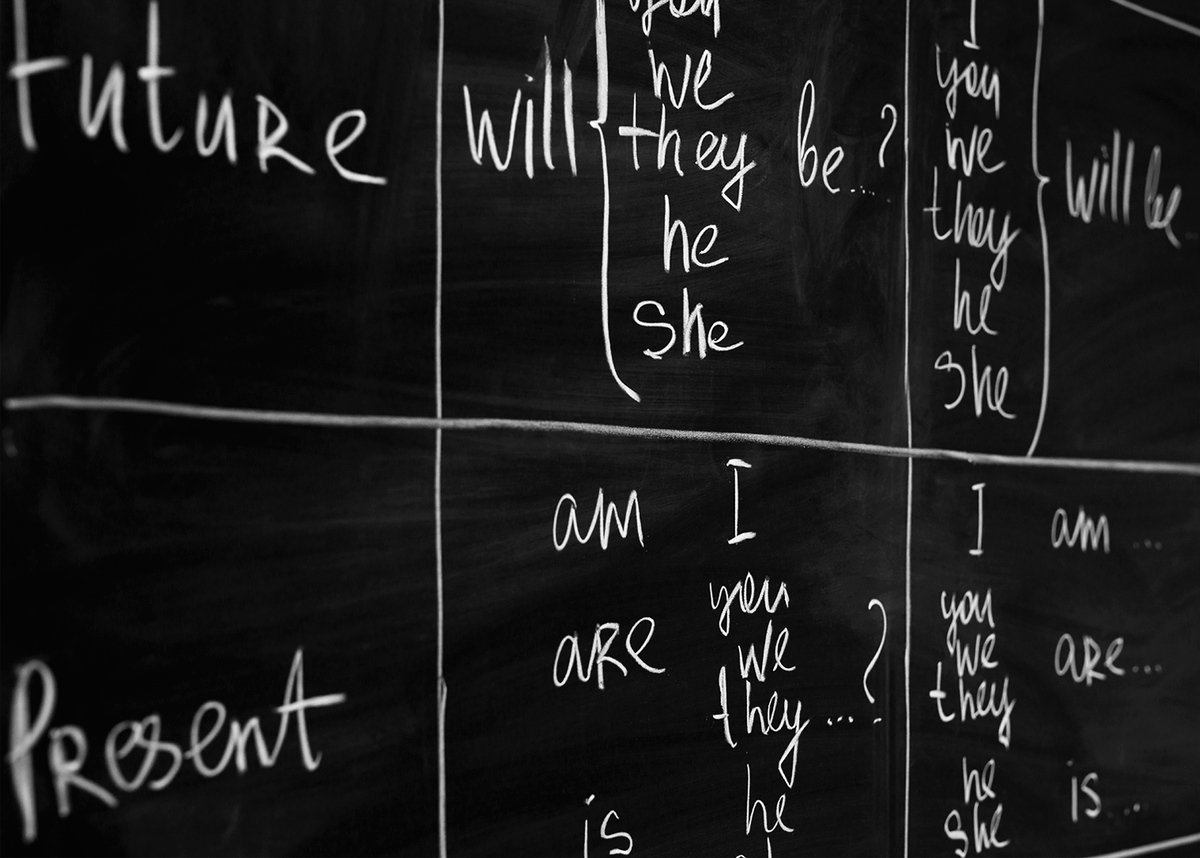 Future
will
you
we
they
he
she
be....?
I
you
we
they
he
she
will be
Present
am I
are
you
we
they ...?
is
he
I am ...
you
we
they
are...
he
she
is...